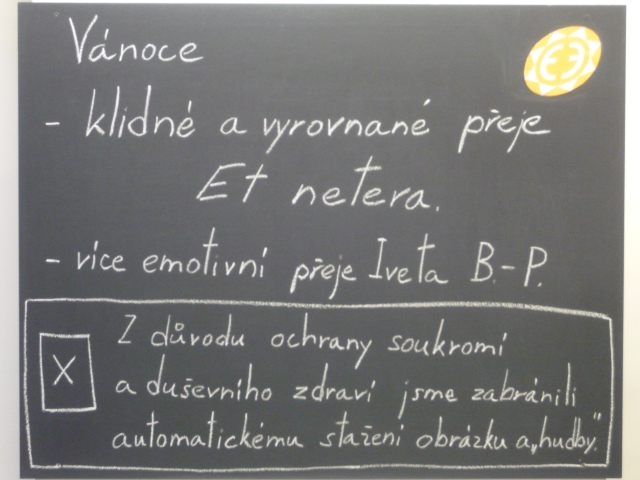 Vánoce
- klidné a vyrovnané přeje
Et netera.
- více emotivní přeje Iveta B.-P.
X
Z důvodu ochrany soukromí
a duševního zdraví jsme zabránili
automatickému stažení obrázku a „hudby“.